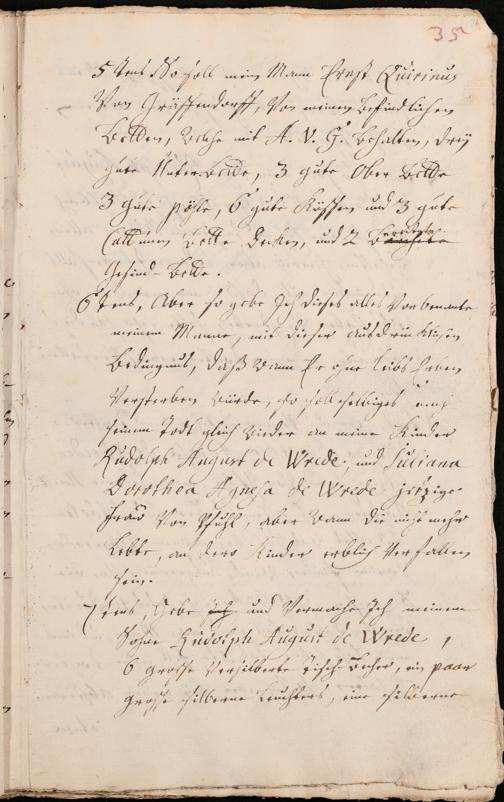 35
5tens So soll mein Mann Ernst Quirinus
Von Gräffendorff, Von meinen befindlichen
Betten, welche mit A. V. G. behalten, drey
gute Unter Bette, 3 gute Ober Bette
3 gute pöhle, 6 gute Küssen und 3 gute
Cattunen Bette Decken, und 2
Gesind-Bette.
6tens, Aber so gebe Ich dieses alles Vorbenante
meinem Manne, mit dieser ausdrücklichen
Bedingnus, daß wann Er ohne leibs Erben
Versterben würde, so soll selbiges nach
seinem Todt gleich wieder an meine Kinder
Rudolph August de Wrede, und Juliana
Dorothea Agnesa de Wrede jetzige
Frau Von Pfuhl, aber wann die nicht mehr
Lebte, an dero Kinder erblich Verfallen
sein.
7tens Gebe ich und Vermache Ich meinem
Sohne Rudolph August de Wrede,
6 grosse Versilberte tisch Becher, ein paar
grosse silberne Leuchters, eine silberne